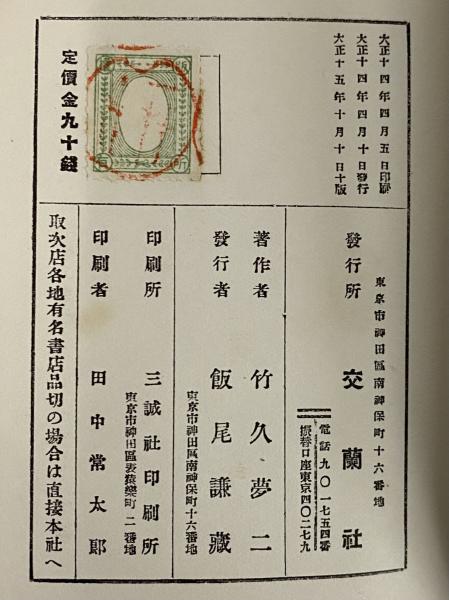 大正十四年四月五日印刷
大正十四年四月十日發行
大正十五年十月十日十版
定價金九十錢
東京市神田區南神保町十六番地
發行所 交蘭社
電話九〇一七五四番
振替口座東京四〇二七九
著作者 竹久夢二
發行者 飯尾謙藏
東京市神田區南神保町十六番地
印刷所 三誠社印刷所
東京市神田區表猿樂町二番地
印刷者 田中常太郎
取次店各地有名書店品切の場合は直接本社へ